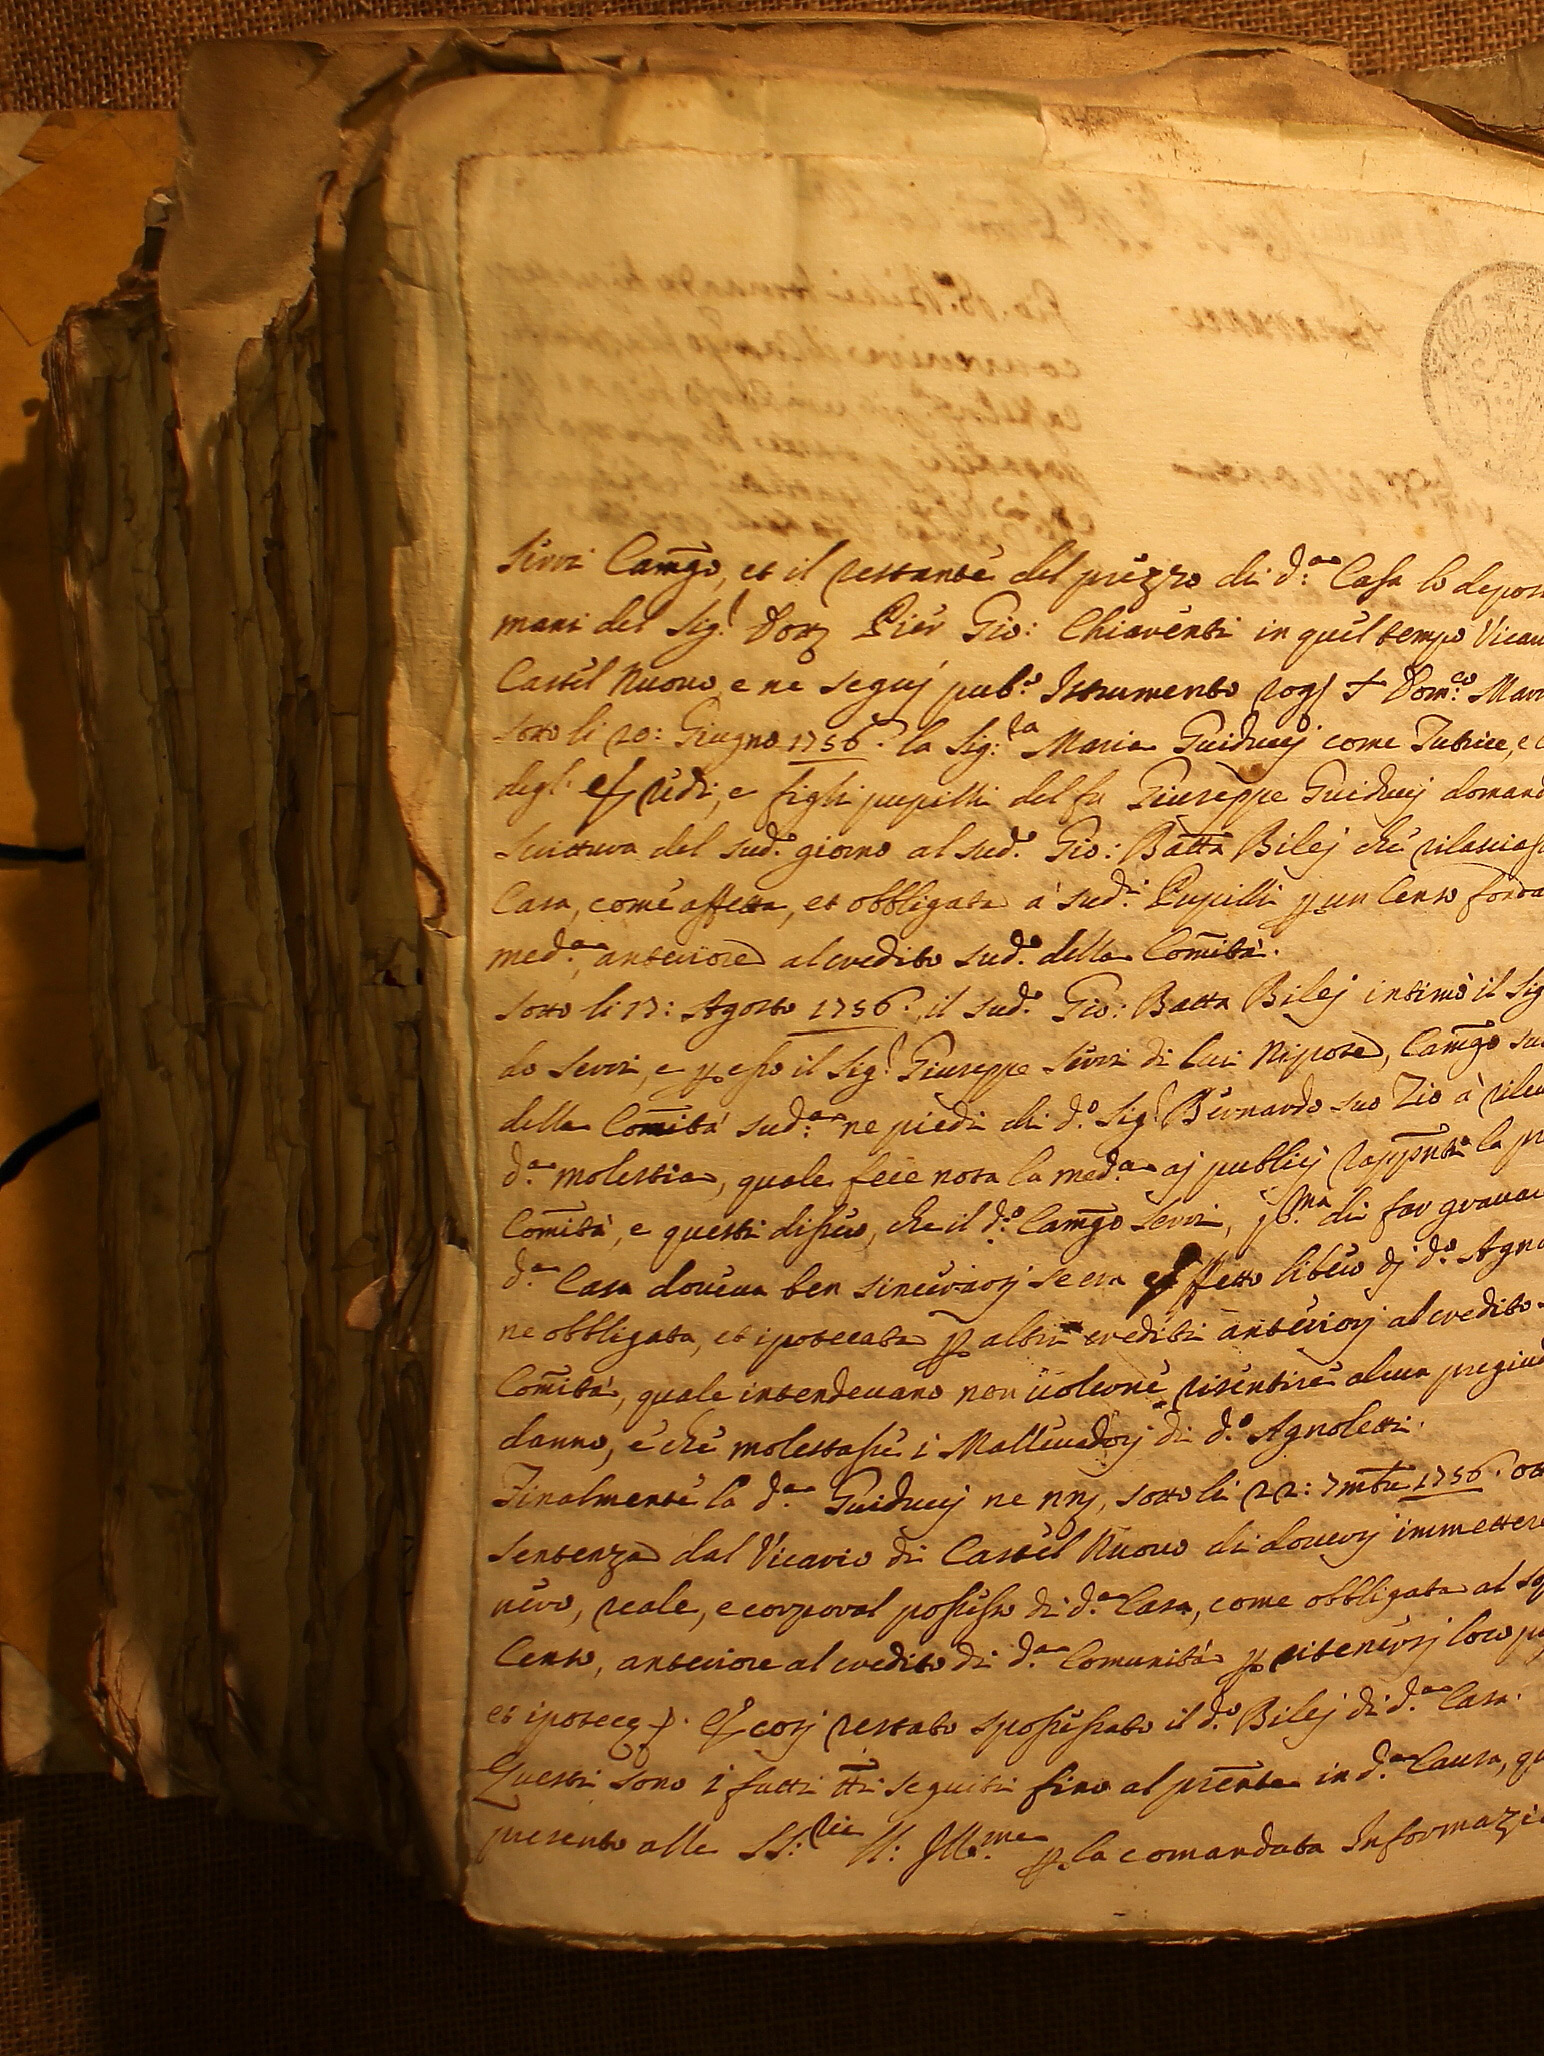 Serri Camg.o, et il restante del prezzo di d.a Casa lo depos
mani del Sig.r Dott. Pier Gio: Chiaventi in quel tempo Vica
Castel Nuovo, e ne seguj pub.o Istrumento rog. Dom.co Mar
sotto li 20: Giugno 1756. la Sig.ra Maria Guiduccj come Tutrice, e
degl' eredi, e figli pupilli del fu Giuseppe Guiduccj domand
scrittura del sud.o giorno al sud.o Gio: Batta Bilej che rilasciass
Casa, come affetta, et obbligata à sud.i Pupilli p un Censo fonda
med.a, anteriore al credito sud.o della Comità.
Sotto li 17: Agosto 1756. il sud.o Gio: Batta Bilej intimò il Sig
do Serri, e p esso il Sig.r Giuseppe Serri di lui Nipote, Camg.o su
della Comità sud.a ne piedi di d.o Sig.r Bernardo suo Zio à rilev
d.a molestia, quale fece nota la med.a aj publicj rappnti la p
Comità, e questi dissero, che il d.o Camg.o Serri, p.ma di far grava
d.a Casa doveva ben sincerarsj se era effetto libero dj d.o Agno
ne obbligata, et ipotecata p altri crediti anteriorj al credito
Comità, quale intendevano non volerne risentire alcun pregiud
danno, e che molestasse i Mallevadorj di d.o Agnoletti.
Finalmente la d.a Guiduccj ne nnj, sotto li 22: 7mbre 1756. ott
sentenza dal Vicario di Castel Nuovo di doversj immettere
vero, reale, e corporal possesso di d.a Casa, come obbligata al so
Censo, anteriore al credito di d.a Comunità p ritenersj loco p
et ipotecę p. et cosj restato spossessato il d.o Bilej di d.a Casa.
Questi sono i fatti tti seguiti fino al prente in d.a Causa, q
presento alle SS:rie LL: Ill.me p la comandata Informazi